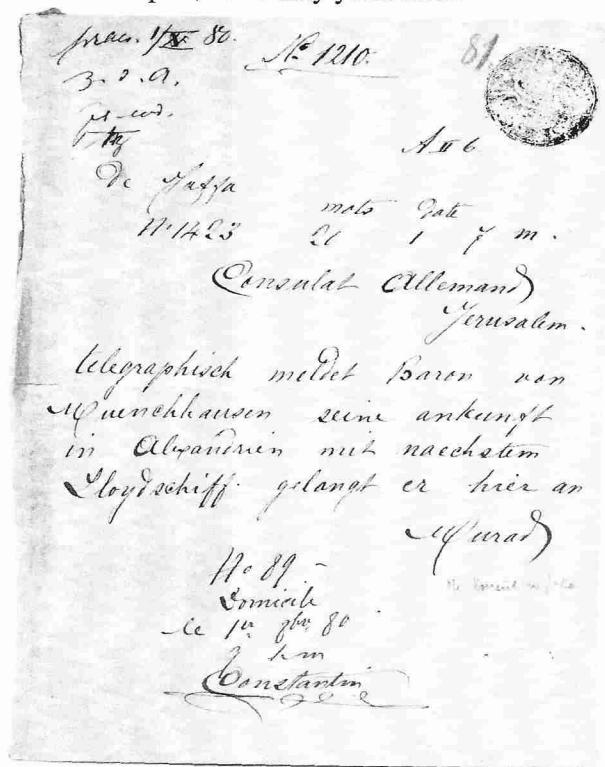 praes. 1/X. 80.
No 1210.
81
z. d. A.
A II 6
De Jaffa
mots date
No 1423 21 1 7 m.
Consulat Allemand
Jerusalem.
telegraphisch meldet Baron von
Muenchhausen seine ankunft
in Alexandrien mit naechstem
Lloydschiff. gelangt er hier an
Murad
No 89 -
Domicile
le 1er 80
Constantin